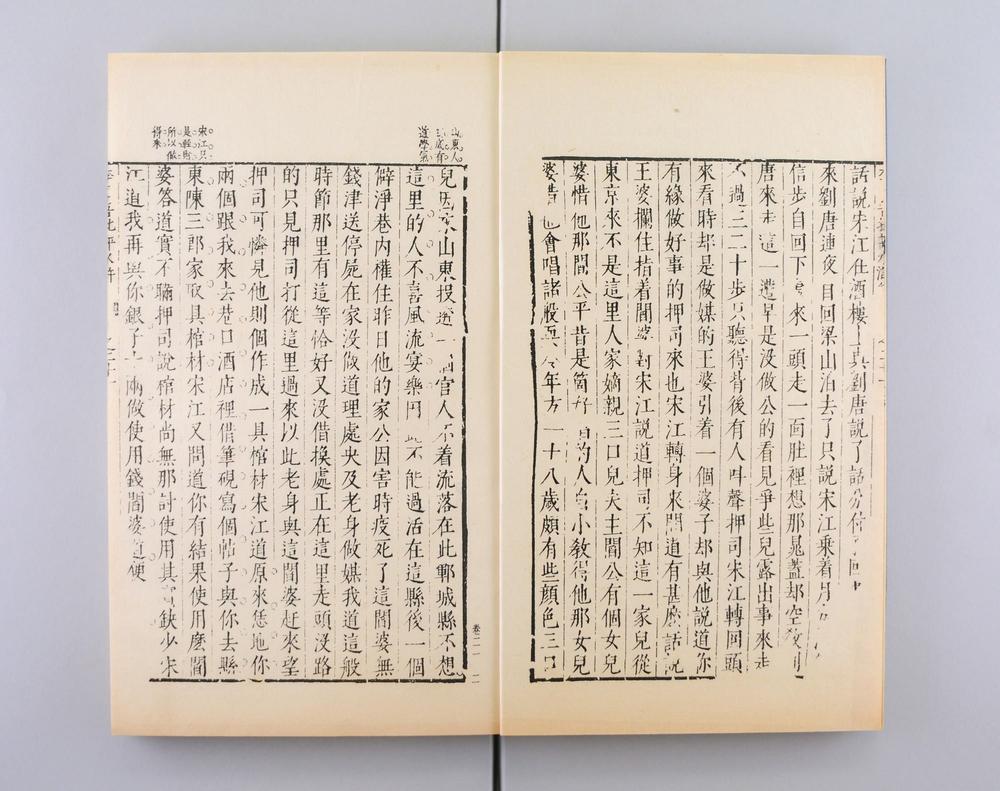 話說宋江在酒樓上與劉唐說了話分付
來劉唐連夜自回梁山泊去了只說宋江乘着月
信步自回下 來一頭走一面肚裡想那晁蓋却空教劉
唐來走這一遭早是沒做公的看見爭些兒露出事來走
不過三二十步只聽得背後有人叫聲押司宋江轉回頭
來看時却是做媒的王婆引着一個婆子却與他說道你
有緣做好事的押司來也宋江轉身來問道有甚麽話說
王婆攔住指着閻婆對宋江說道押司不知這一家兒從
東京來不是這里人家嫡親三口兒夫主閻公有個女兒
婆惜他那閻公平昔是箇好 的人自小教得他那女兒
婆惜也會唱諸般 年方一十八歲頗有些顏色三口
山東人
到底有
道學氣
兒因來山東投 一個官人不着流落在此鄆城縣不想
這里的人不喜風流宴樂因此不能過活在這縣後一個
僻淨巷內權住昨日他的家公因害時疫死了這閻婆無
錢津送停屍在家沒做道理處央及老身做媒我道這般
時節那里有這等恰好又沒借換處正在這里走頭沒路
的只見押司打從這里過來以此老身與這閻婆赶來望
押司可憐見他則個作成一具棺材宋江道原來恁地你
兩個跟我來去巷口酒店裡借筆硯寫個帖子與你去縣
東陳三郎家取具棺材宋江又問道你有結果使用麽閻
婆答道實不瞞押司說棺材尚無那討使用其實缺少宋
江道我再與你銀子十兩做使用錢閻婆道便
宋江只
是輕財
所以做
得來
卷二一 二